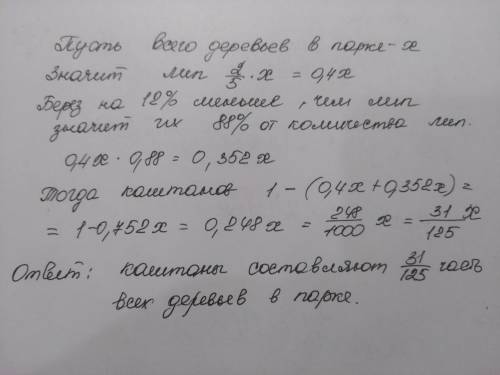 Пусть всего деревьев в парке - x
Значит лип 2/5 · x = 0,4x
Берез на 12% меньше, чем лип
значит их 88% от количества лип.
0,4x · 0,88 = 0,352x
Тогда каштанов 1 - (0,4x + 0,352x) =
= 1-0,752x = 0,248x = 248/1000 x = 31 x/125
Ответ: каштаны составляют 31/125 часть
всех деревьев в парке.